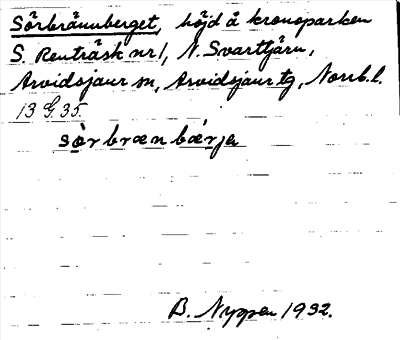 Sörbrännberget, höjd å kronoparken
S. Renträsk nr 1, N. Svarttjärn,
Arvidsjaur sn, Arvidsjaur tg, Norrb. l.
13 G. 35.
sòrbrænbǽrja
B. Nyppen 1932.